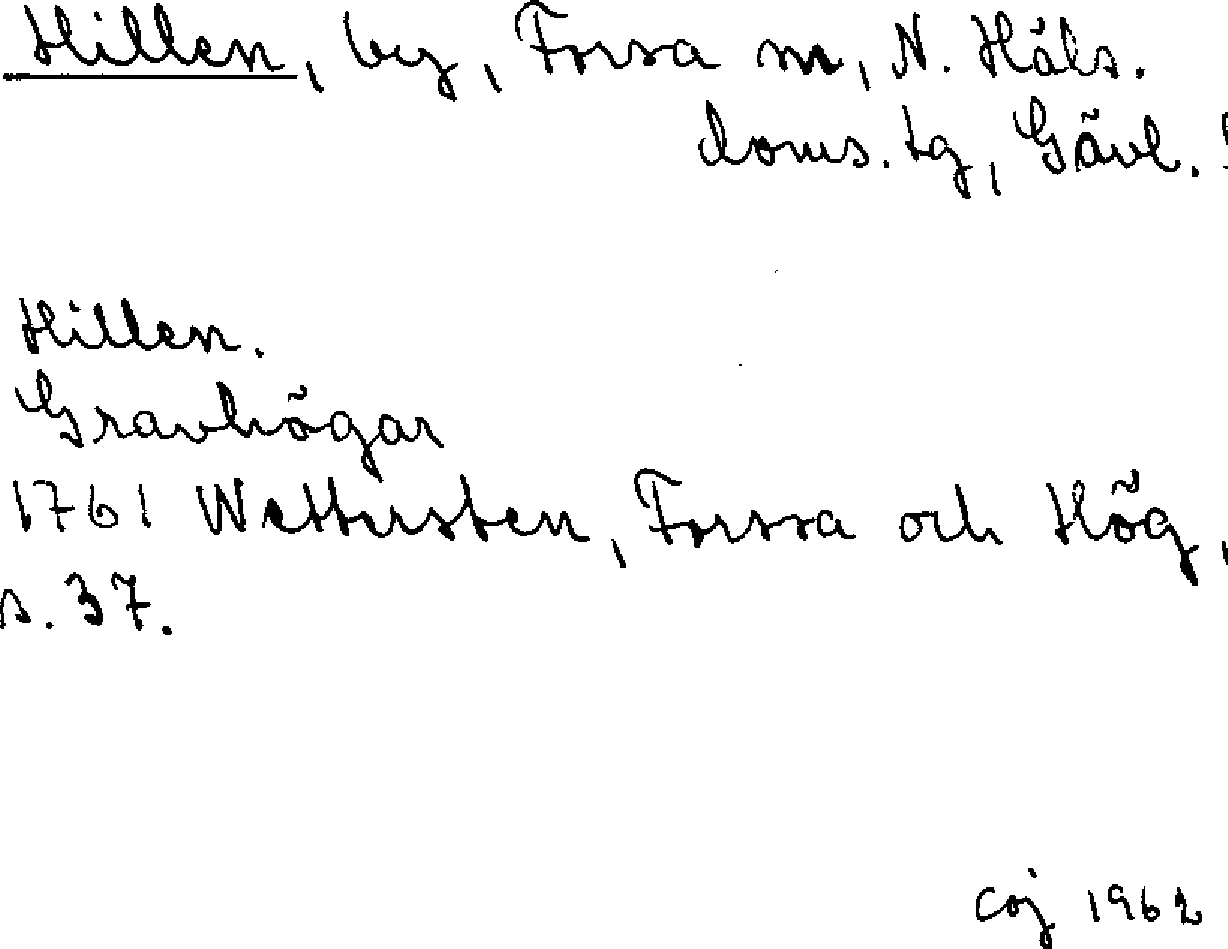 Hillen, by, Forsa sn, N. Häls.
doms. tg, Gävl.
Hillen.
Gravhögar
1761 Wettersten, Forssa och Hög,
s. 37.
coj 1962